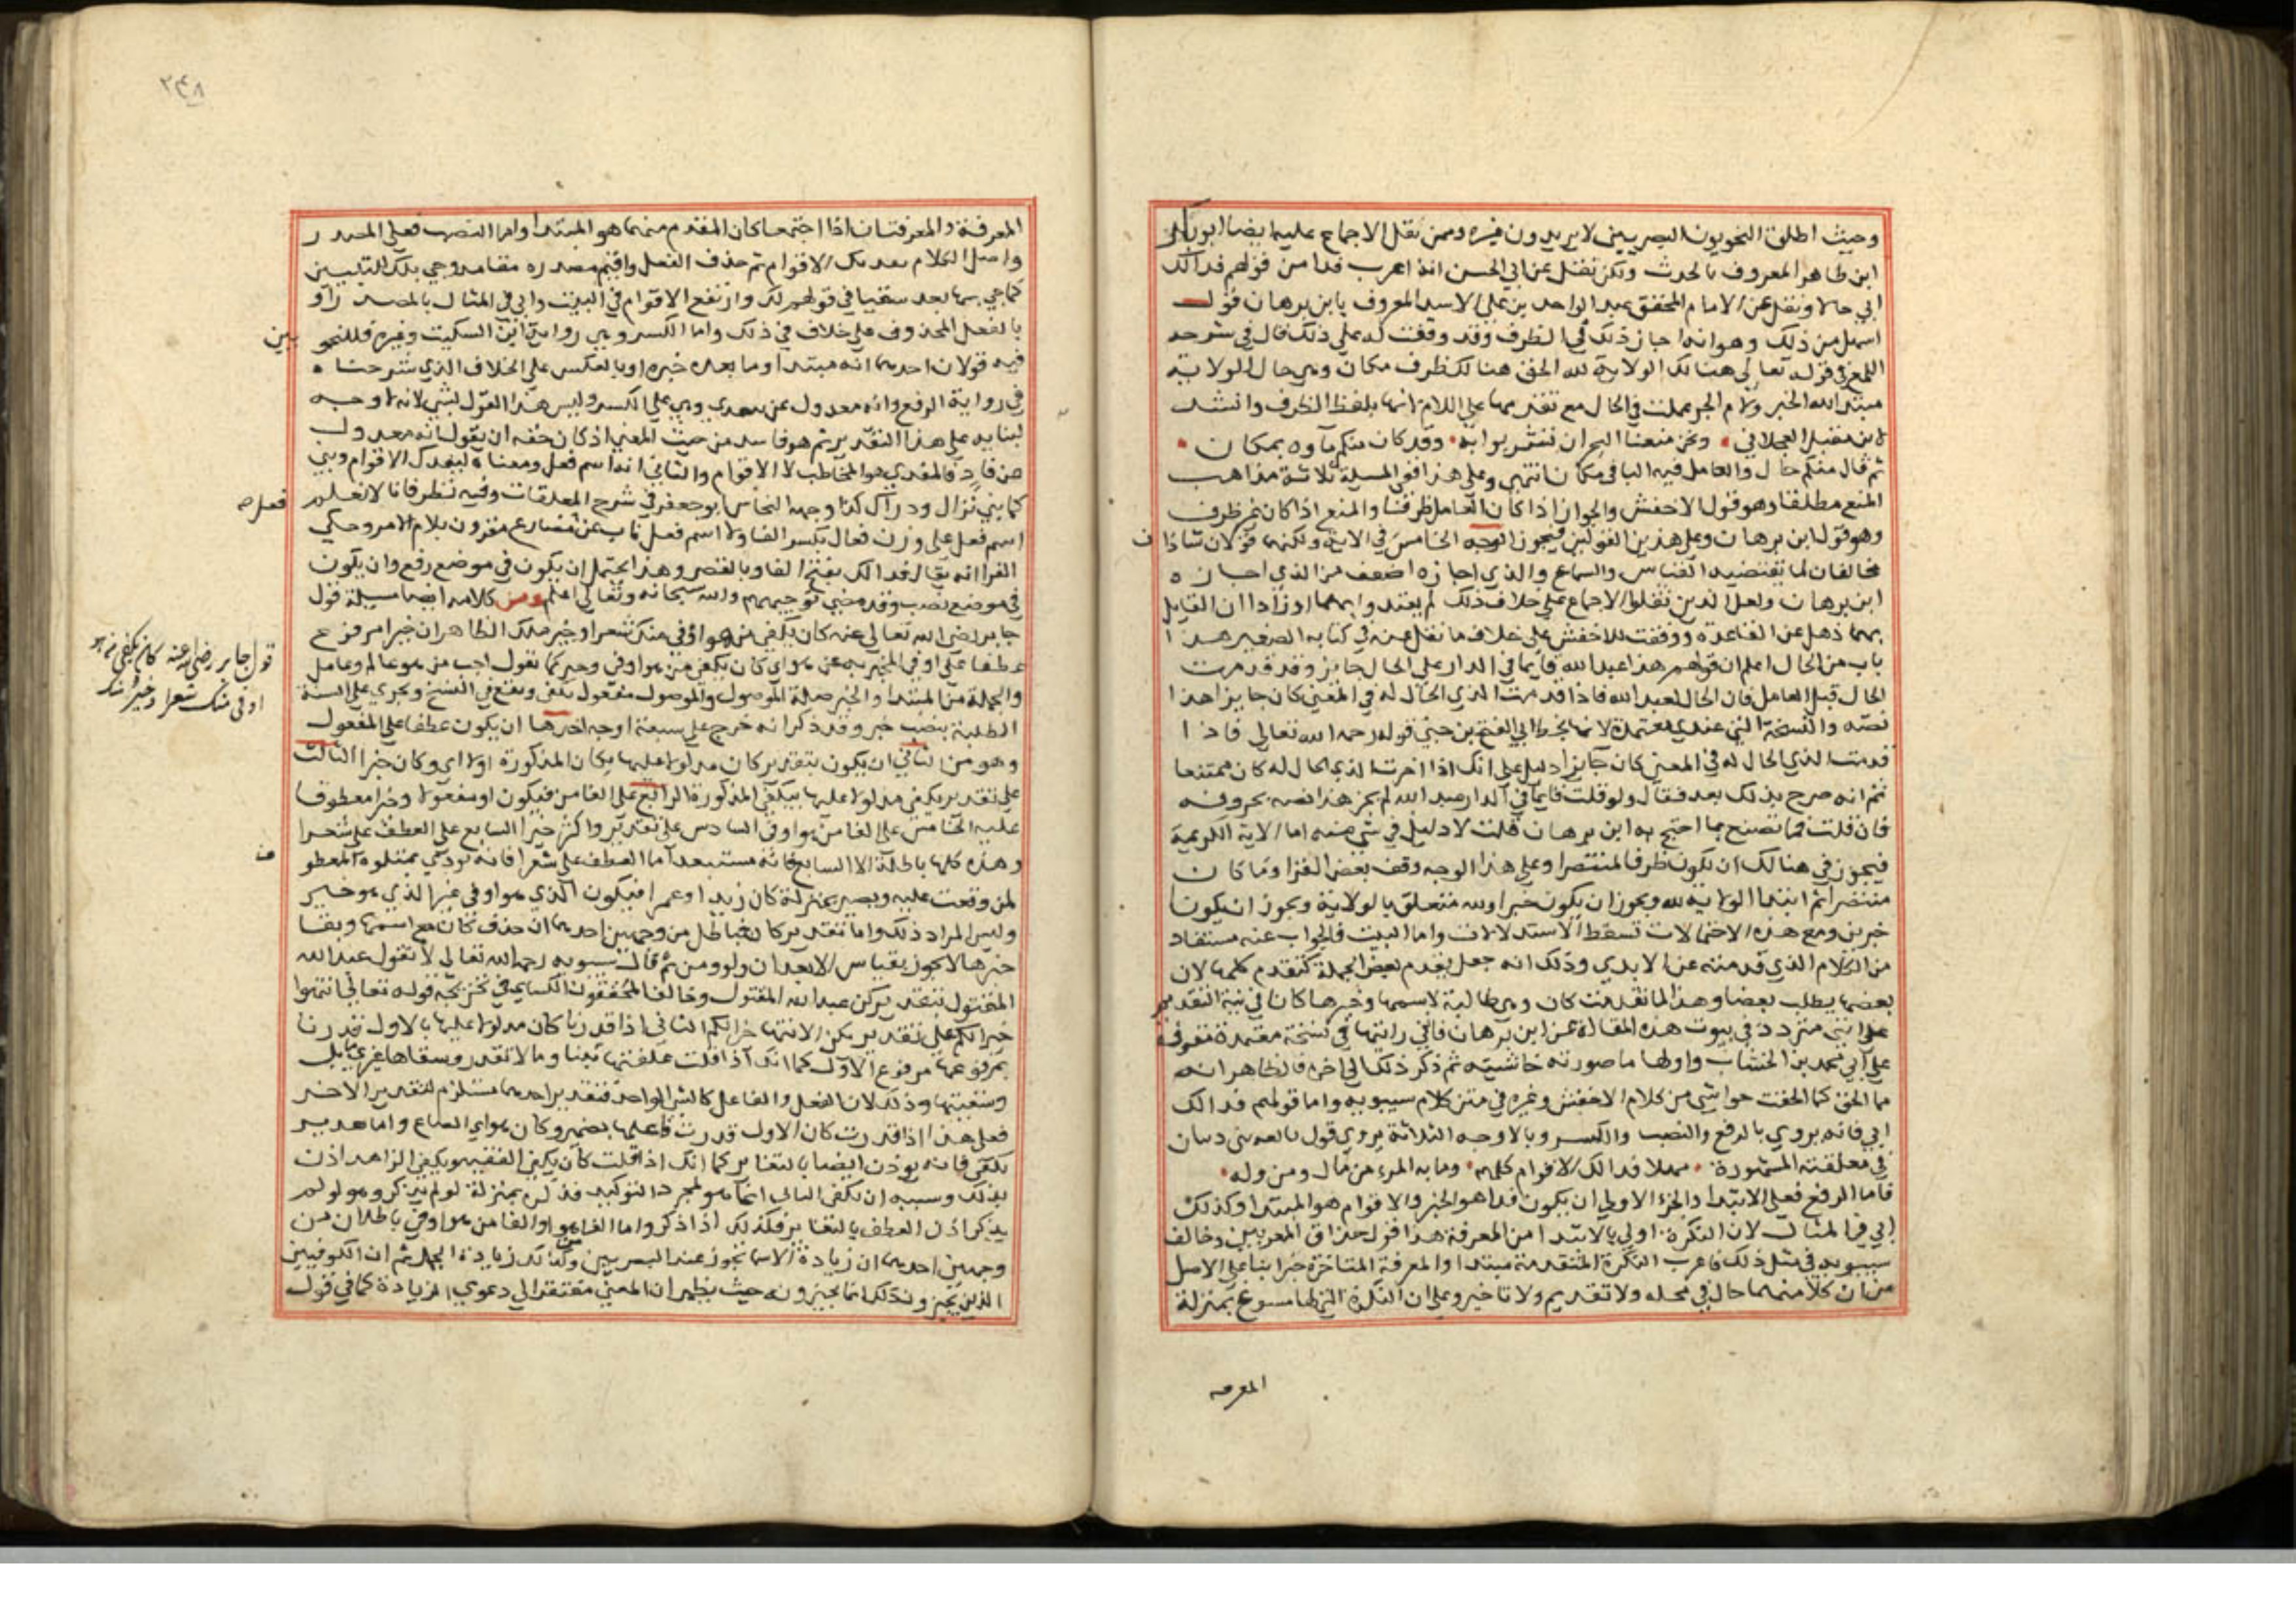 وحيث اطلق النحويون البصريين لا يريدون غيره وممن نقل الاجماع عليها ايضا ابو بكر
ابن طاهر المعروف بالحدث ولكن نقل عن ابي الحسن انه اعرب فدا من قولهم فدا لك
ابي حالا ونقل عن الامام المحقق عبد الواحد بن علي الاسد المعروف بابن برهان قول
اسهل من ذلك وهو انه اجاز ذلك في الظرف وقد وقفت له على ذلك قال في شرحه
اللمع في قوله تعالى هنالك الولاية لله الحق هنالك ظرف مكان وهي حال الولاية
مبتدا لله الخبر ولام الجر عملت في الحال مع تقديمها على اللام لانها بلفظ الظرف وانشد
لابن مقبل العجلاني ونحن منعنا البحر ان تشربوا به وقد كان منكم ماوه بمكان
ثم قال منكم حال والعامل فيه الباقي مكان انتهى وعلى هذا ففي المسيلة ثلاثة مذاهب
المنع مطلقا وهو قول الاخفش والجواز اذا كان العامل ظرفا والمنع اذا كان غير ظرف
وهو قول ابن برهان وعلى هذين القولين فيجوز الوجه الخامس في الاية ولكنهما قولان شاذان
مخالفان لما يقتضيه القياس والسماع والذي اجازه اضعف من الذي اجازه
ابن برهان ولعل الذين نقلوا الاجماع على خلاف ذلك لم يعتدوا بهما او زادا ان القايل
بهما ذهل عن القاعدة ووقفت للاخفش على خلاف ما نقل عنه في كتابه الصغير هذا
باب من الحال اعلم ان قولهم هذا عبد الله قايما في الدار على الحال جايز وقد قدمت
الحال قبل العامل فان الحال لعبد الله فاذا قدمت الذي الحال له في المعنى كان جايزا هذا
نصه والنسخة التي عندي معتمدة لانها بخط ابي الفتح بن جني قوله رحمه الله تعالى فاذا
قدمت الذي الحال له في المعنى كان جايزا دليل على انك اذا اخرت الذي الحال له كان ممتنعا
ثم انه صرح بذلك بعد فقال ولو قلت قايما في الدار عبد الله لم يجز هذا نصه بحروفه
فان قلت فما تصنع بما احتج به ابن برهان قلت لا دليل في شي منه اما الاية الكريمة
فيجوز في هنالك ان يكون ظرفا لمنتصرا وعلى هذا الوجه وقف بعض القرا وما كان
منتصرا ثم ابتدا الولاية لله ويجوز ان يكون خبرا ولله متعلق بالولاية ويجوز ان يكونا
خبرين ومع هذه الاحتمالات تسقط الاستدلالات واما البيت فالجواب عنه مستفاد
من الكلام الذي قدمته عن الابدي وذلك انه جعل تقدم بعض الجملة كتقدم كلها لان
بعضها يطلب بعضا وهذا لما تقدمت كان وهي طالبة لاسمها وخبرها كانا في نية التقديم
على انني متردد في ثبوت هذه المقالة عن ابن برهان فانني رايتها في نسخة معتمدة مقروة
على ابي محمد بن الخشاب واولها ما صورته حاشية ثم ذكر ذلك الى اخره فالظاهر انه
مما الحق كما الحقت حواشي من كلام الاخفش وغيره في متن كلام سيبويه واما قولهم فدا لك
ابي فانه يروي بالرفع والنصب والكسر وبالاوجه الثلاثة يروي قول نابغة بني ذبيان
في معلقته المشهورة مهلا فدا لك الاقوام كلهم وما به المرء من مال ومن ولد
فاما الرفع فعلى الابتدا والخبر الاولى ان يكون فدا هو الخبر والاقوام هو المبتدا وكذلك
ابي في المثال لان النكرة اولى بالابتدا من المعرفة هذا قول حذاق المعربين وخالف
سيبويه في مثل ذلك فاعرب النكرة المتقدمة مبتدا والمعرفة المتاخرة خبرا بناء على الاصل
من ان كلا منهما حال في محله ولا تقديم ولا تاخير وعلى ان النكرة التي لها مسوغ بمنزلة
المعرفة
٢٤٨
المعرفة والمعرفتان اذا اجتمعا كان المقدم منهما هو المبتدا واما النصب فعلى المصدر
واصل الكلام تفديك الاقوام ثم حذف الفعل واقيم مصدره مقامه وجي بلك للتبيين
كما جي بها بعد سقيا في قولهم لك وارتفع الاقوام في البيت وابي في المثال بالمصدر او
بالفعل المحذوف على خلاف في ذلك واما الكسر وهي رواية ابن السكيت وغيره فللنحويين
فيه قولان احدهما انه مبتدا وما بعده خبره او بالعكس على الخلاف الذي شرحناه
في رواية الرفع وانه معدول عن مهدي وبني على الكسر وليس هذا القول بشي لانه لا وجه
لبنايه على هذا التقدير ثم هو فاسد من حيث المعنى اذ كان حقه ان يقول انه معدول
عن فاد فالمفدي هو المخاطب لا الاقوام والثاني انه اسم فعل ومعناه ليفدك الاقوام وبني
كما بني نزال ودراك كذا وجهه النحاس ابو جعفر في شرح المعلقات وفيه نظر فانا لا نعلم
فعل صح
اسم فعل على وزن فعال بكسر الفا ولا اسم فعل ناب عن مضارع مقرون بلام الامر وحكي
الفرا انه يقال فدا لك بفتح الفا وبالقصر وهذا يحتمل ان يكون في موضع رفع وان يكون
في موضع نصب وقد مضى توجيههم والله سبحانه وتعالى اعلم ومن كلامه ايضا مسيلة قول
جابر رضي الله تعالى عنه كان يكفي من هو اوفى منك شعرا وخير منك الظاهر ان خير مرفوع
قول جابر رضي الله عنه كان يكفي من هو
اوفى منك شعرا وخير منك
عطفا على اوفى المخبر به عن هو اي كان يكفي من هو اوفى وخير كما تقول احب من هو عالم وعامل
والجملة من المبتدا والخبر صلة الموصول والموصول مفعول يكفي ويقع في النسخ ويجري على السنة
الطلبة بنصب خير وقد ذكر انه خرج على سبعة اوجه احدها ان يكون عطفا على المفعول
وهو من الثاني ان يكون بتقدير كان مدلولا عليها بكان المذكورة اولا اي وكان خيرا الثالث
على تقدير يكفي مدلولا عليها بيكفي المذكورة الرابع على الغا من فيكون او مفعولا وخيرا معطوفا
عليه الخامس على الغا من هو اوفى السادس على تقدير واكثر خيرا السابع على العطف على شعرا
وهذه كلها باطلة الا السابع فانه مستبعد اما العطف على شعرا فانه يودي بمتلوه المعطوف
لمن وقعت عليه ويصير بمنزلة كان زيدا وعمرا فيكون الذي هو اوفى غير الذي هو خير
وليس المراد ذلك واما تقدير كان فباطل من وجهين احدهما ان حذف كان مع اسمها وبقا
خبرها لا يجوز بقياس الا بعد ان ولو ومن ثم قال سيبويه رحمه الله تعالى لا تقول عبد الله
المقتول بتقدير كن عبد الله المقتول وخالف المحققون الكسايي في تخريجه قوله تعالى انتهوا
خيرا لكم على تقدير يكن الانتها خيرا لكم الثاني اذا قدرنا كان مدلولا عليها بالاولى قدرنا
بمرفوعها مرفوع الاول كما انك اذا قلت علفتها تبنا وما لا تقدر وسقاها غيري بل
وسقيتها وذلك لان الفعل والفاعل كالشي الواحد فتقدير احدهما مستلزم لتقدير الاخر
فعلى هذا اذا قدرت كان الاول قدرت فاعلها بضمير وكان هو اي الصاع واما هدير
يكفي فانه يوذن ايضا بالتغاير كما انك اذا قلت كان يكفي الفقيه ويكفي الزاهد اذنت
بذلك وسببه ان يكفي الثاني انما هو لمجرد التوكيد فذكره بمنزلة لو لم يذكر وهو لو لم
يذكر اذن العطف بالتغاير فكذلك اذا ذكر واما الغا هو او الغا من هو اوفى باطلان من
وجهين احدهما ان زيادة الاسما تجوز عند البصريين وكذلك زيادة الجمل ثم ان الكوفيين
الذين يجيزون ذلك انما يجيزونه حيث يظهر ان المعنى مفتقرا الى دعوى الزيادة كما في قول